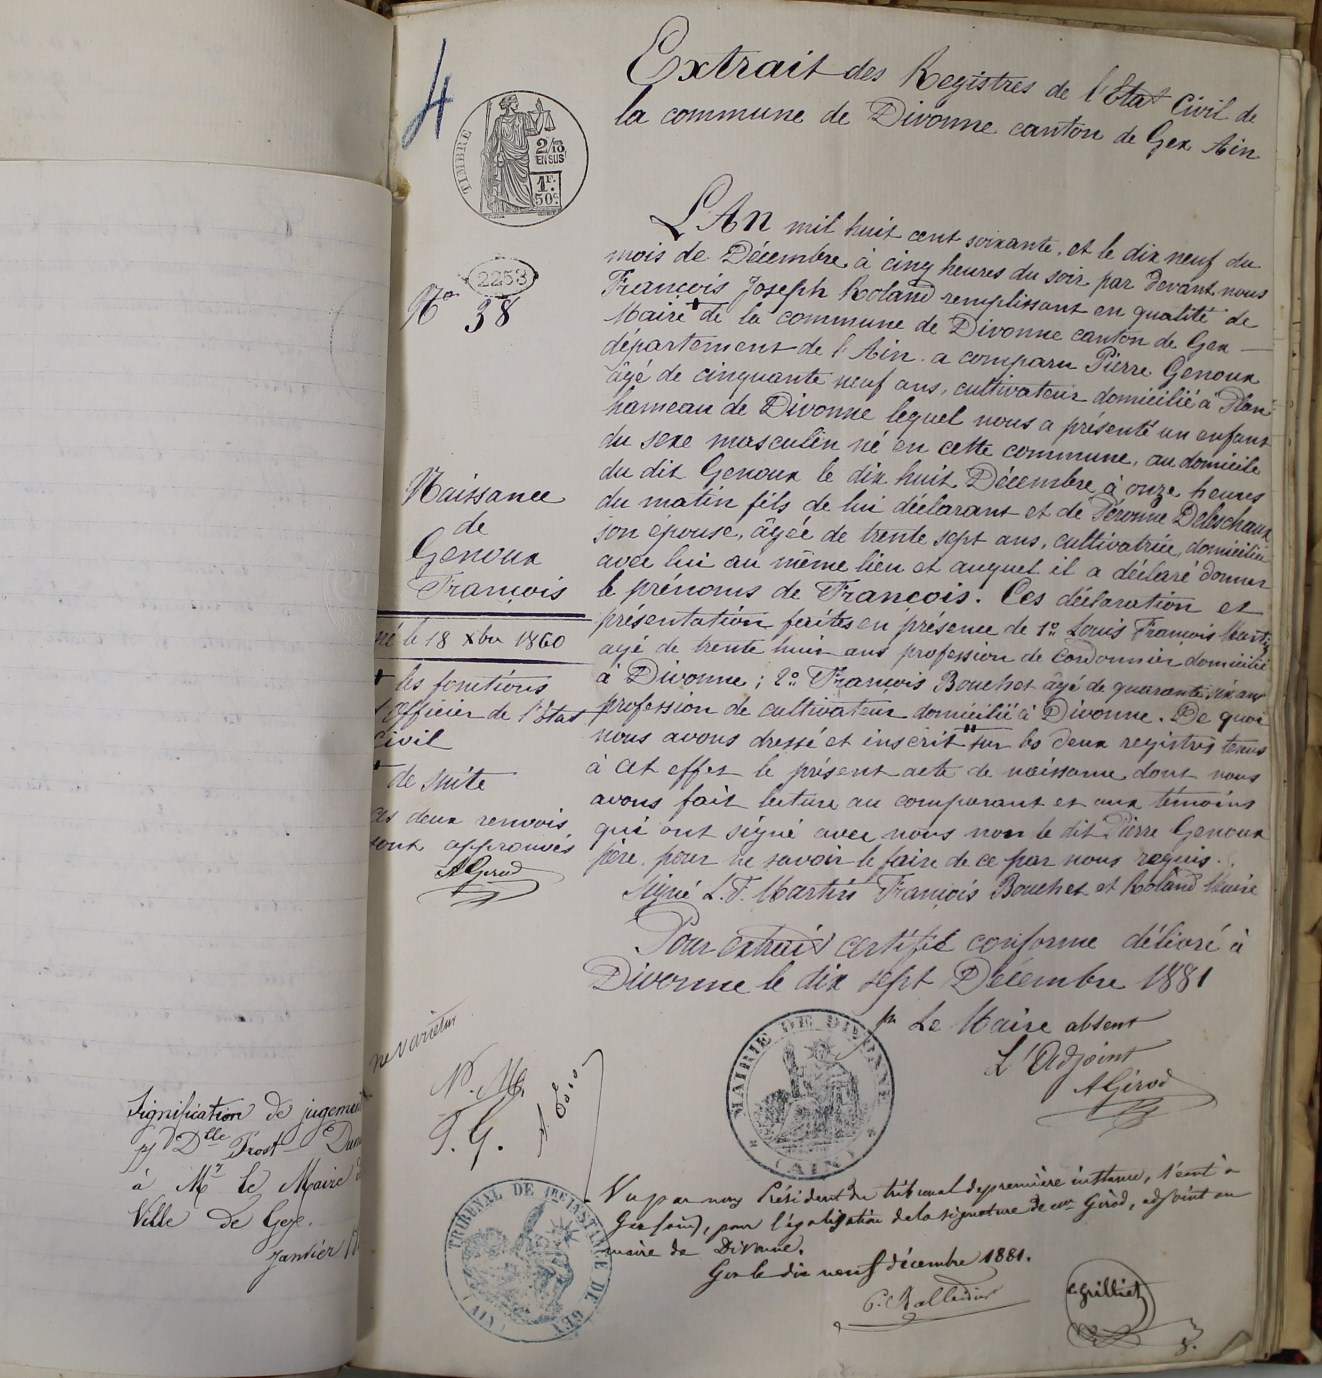 4
TIMBRE
2/10
EN SUS
1F.
50c
Extrait des Registres de l'Etat Civil de
la commune de Divonne canton de Gex Ain
2253
No 38
L'An mil huit cent soixante, et le dix neuf du
mois de Décembre, à cinq heures du soir par devant nous
François Joseph Roland remplissant en qualité de
Maire + de la commune de Divonne canton de Gex —
département de l'Ain. a comparu Pierre Genoux
âgé de cinquante neuf ans, cultivateur domicilié à Plan
hameau de Divonne lequel nous a présenté un enfant
du sexe masculin né en cette commune, au domicile
du dit Genoux le dix huit Décembre à onze heures
du matin fils de lui déclarant et de Péronne
son épouse, âgée de trente sept ans, cultivatrice, domiciliée
avec lui au même lieu et auquel il a déclaré donner
le prénoms de François. Ces déclaration et
présentation faites en présence de 1o Louis François Martin
agé de trente huit ans profession de cordonnier domicilié
à Divonne ; 2o François Bouchet âgé de quarante six ans
profession de cultivateur domicilié à Divonne. De quoi
nous avons dressé et inscrit " sur les deux registres tenus
à cet effet le présent acte de naissance dont nous
avons fait lecture au comparant et aux témoins
qui ont signé avec nous non le dit Pierre Genoux
père, pour ne savoir le faire de ce par nous requis.
Signé L. F. Martin François Bouchet et Roland Maire
Naissance
de
Genoux
François
né le 18 Xbre 1860
+ les fonctions
d'Officier de l'Etat
civil
" de suite
Les deux renvois
sont approuvés
AGirod
Pour extrait certifié conforme délivré à
Divonne le dix sept Décembre 1881
pr Le Maire absent
L'Adjoint
AGirod
MAIRIE DE DIVONNE
(AIN)
ne varietur
N. M.
P. G.
Signification de jugement
pr Dlle Prost
à Mr le Maire
Ville de Gex.
Janvier
TRIBUNAL DE 1RE INSTANCE DE GEX
(AIN)
Vu par nous Président du tribunal de première instance, séant à
Gex (ain), pour légalisation de la signature de Mr Girod, adjoint au
maire de Divonne.
Gex le dix neuf décembre 1881.